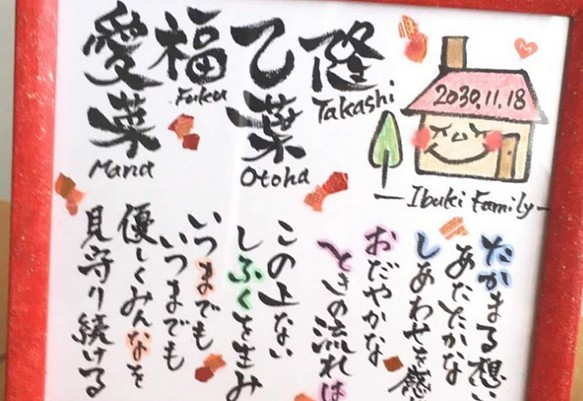 隆
Takashi
乙葉
Otoha
福
Fuku
愛菜
Mana
2030.11.18
Ibuki Family
たかまる想い
あたたかな
しあわせを感
おだやかな
ときの流れは
この上ない
しふくを生み
いつまでも
いつまでも
優しくみんなを
見守り続ける